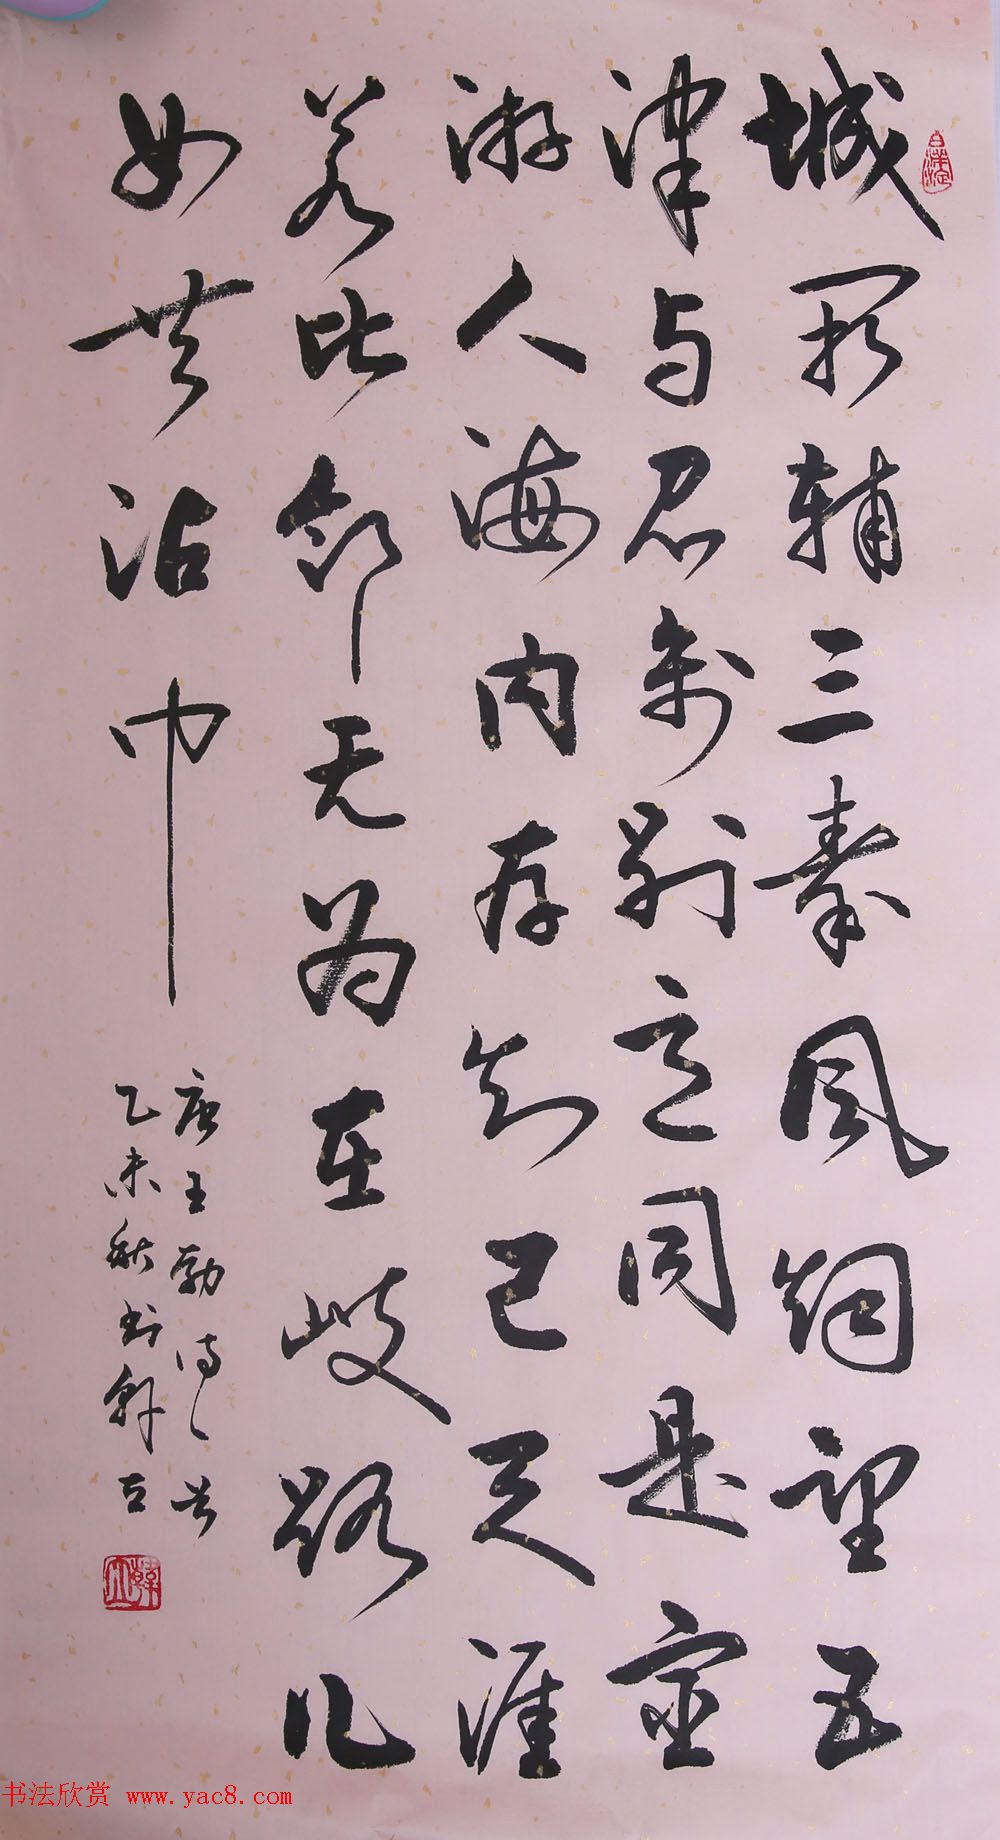 城阙辅三秦风烟望五
津与君离别意同是宦
游人海内存知己天涯
若比邻无为在歧路儿
女共沾巾
唐王勃诗一首
乙未秋书韩立
书法欣赏 www.yac8.com